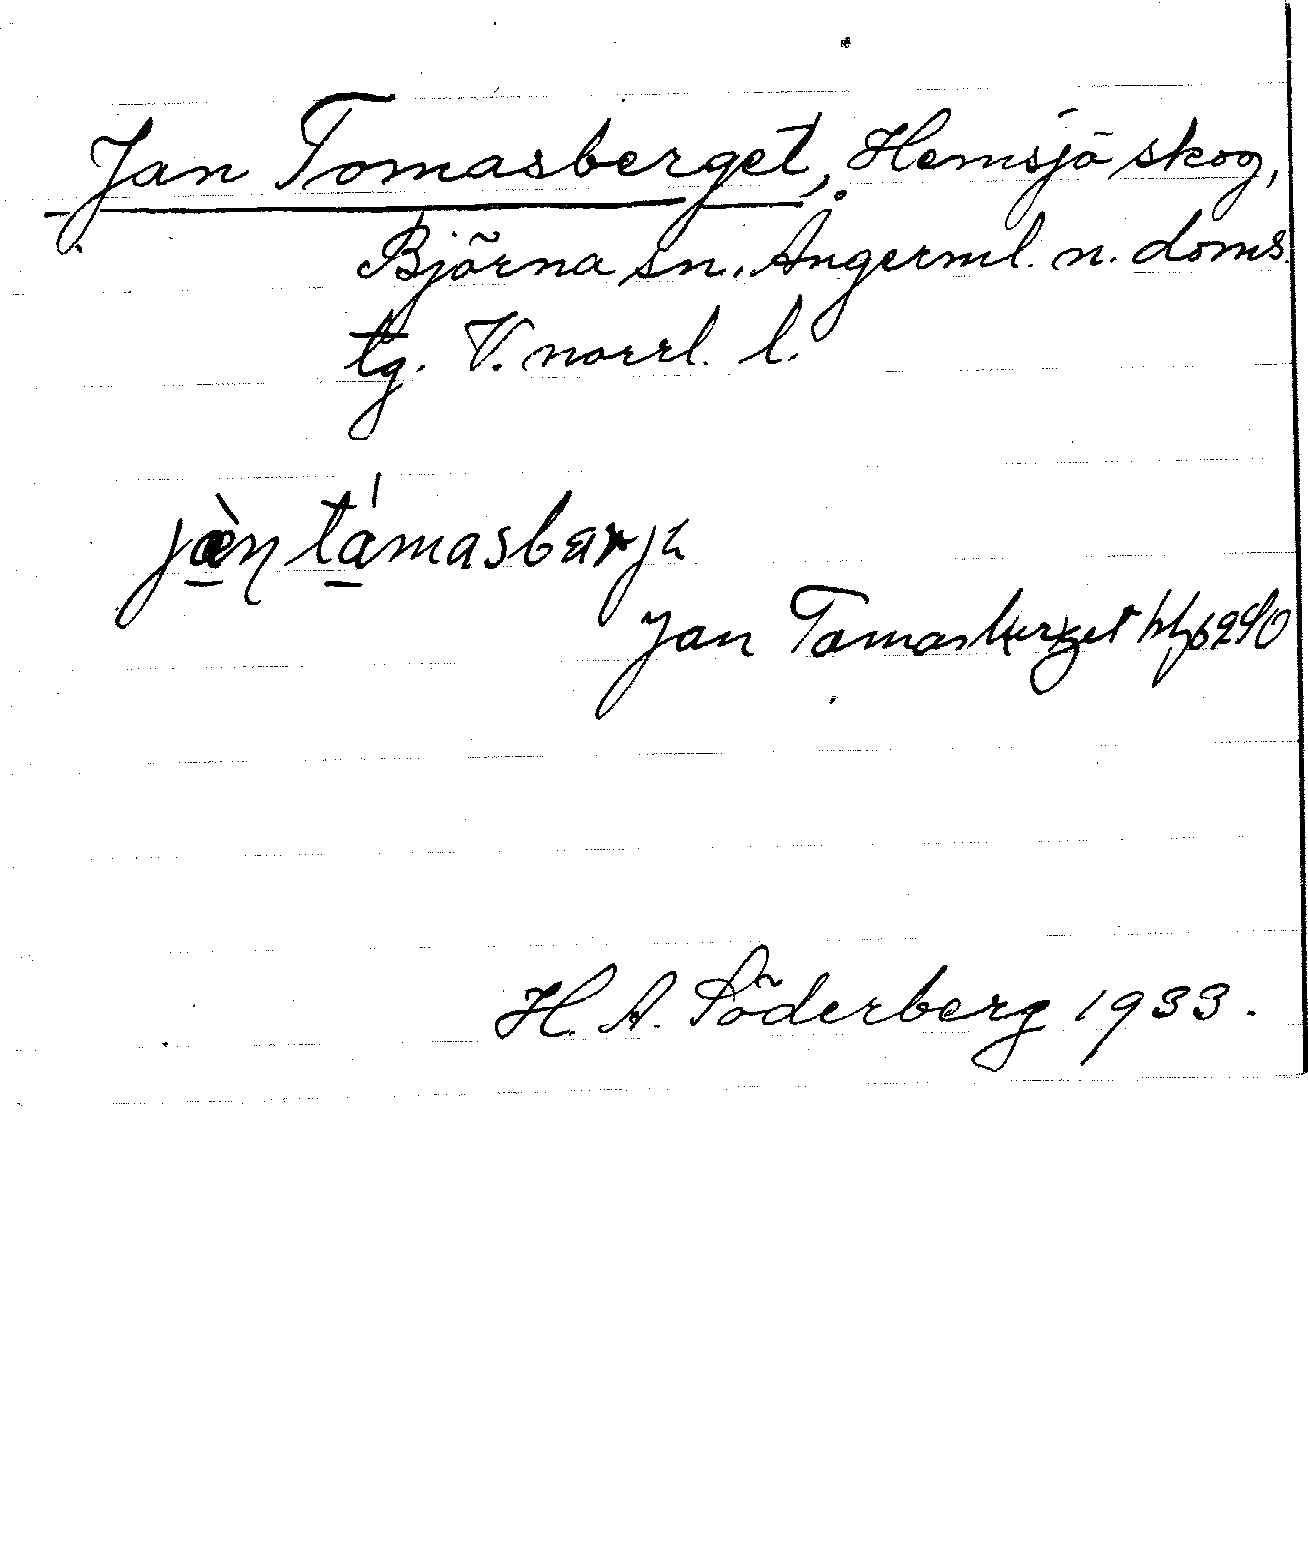 Jan Tomasberget, Hemsjö skog,
Björna sn. Ångerml. n. doms.
tg. V. norrl. l.
jæ̀n támasbarjɩ
Jan Tomasberget
H. A. Söderberg 1933.